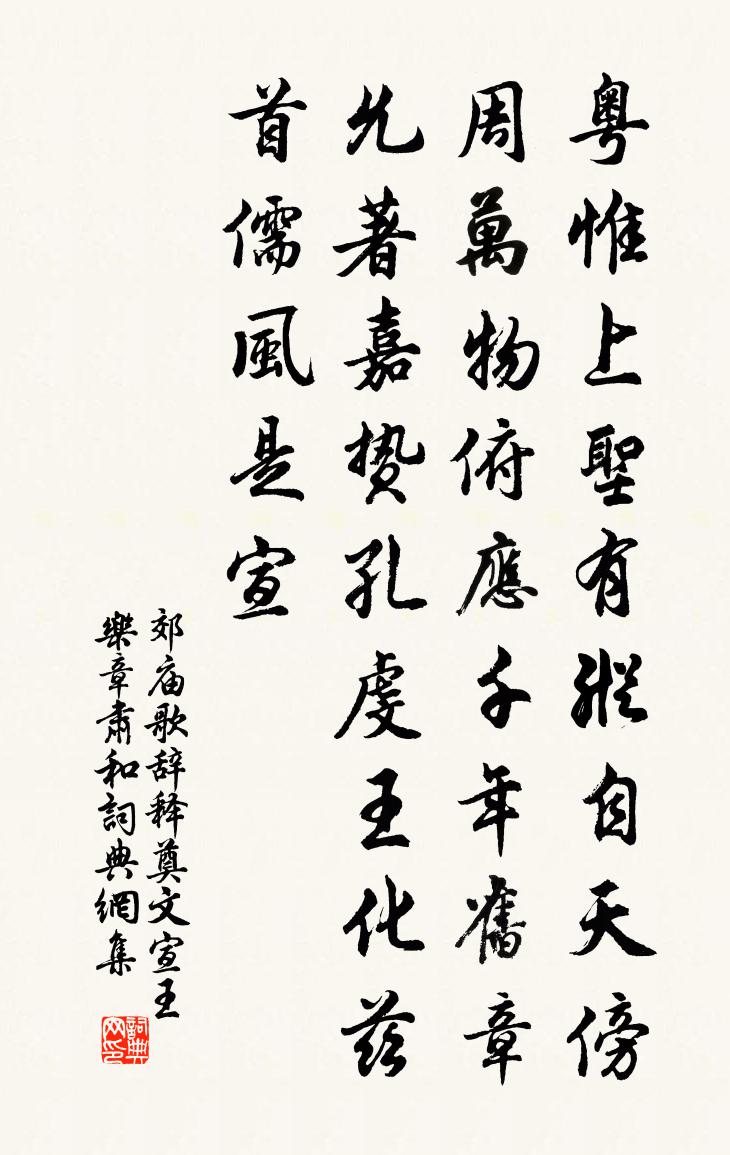 粤惟上聖有縱自天傍
周萬物俯應千年舊章
允著嘉贄孔虔王化茲
首儒風是宣
郊庙歌辞释奠文宣王
樂章肅和詞典網集
詞典网印